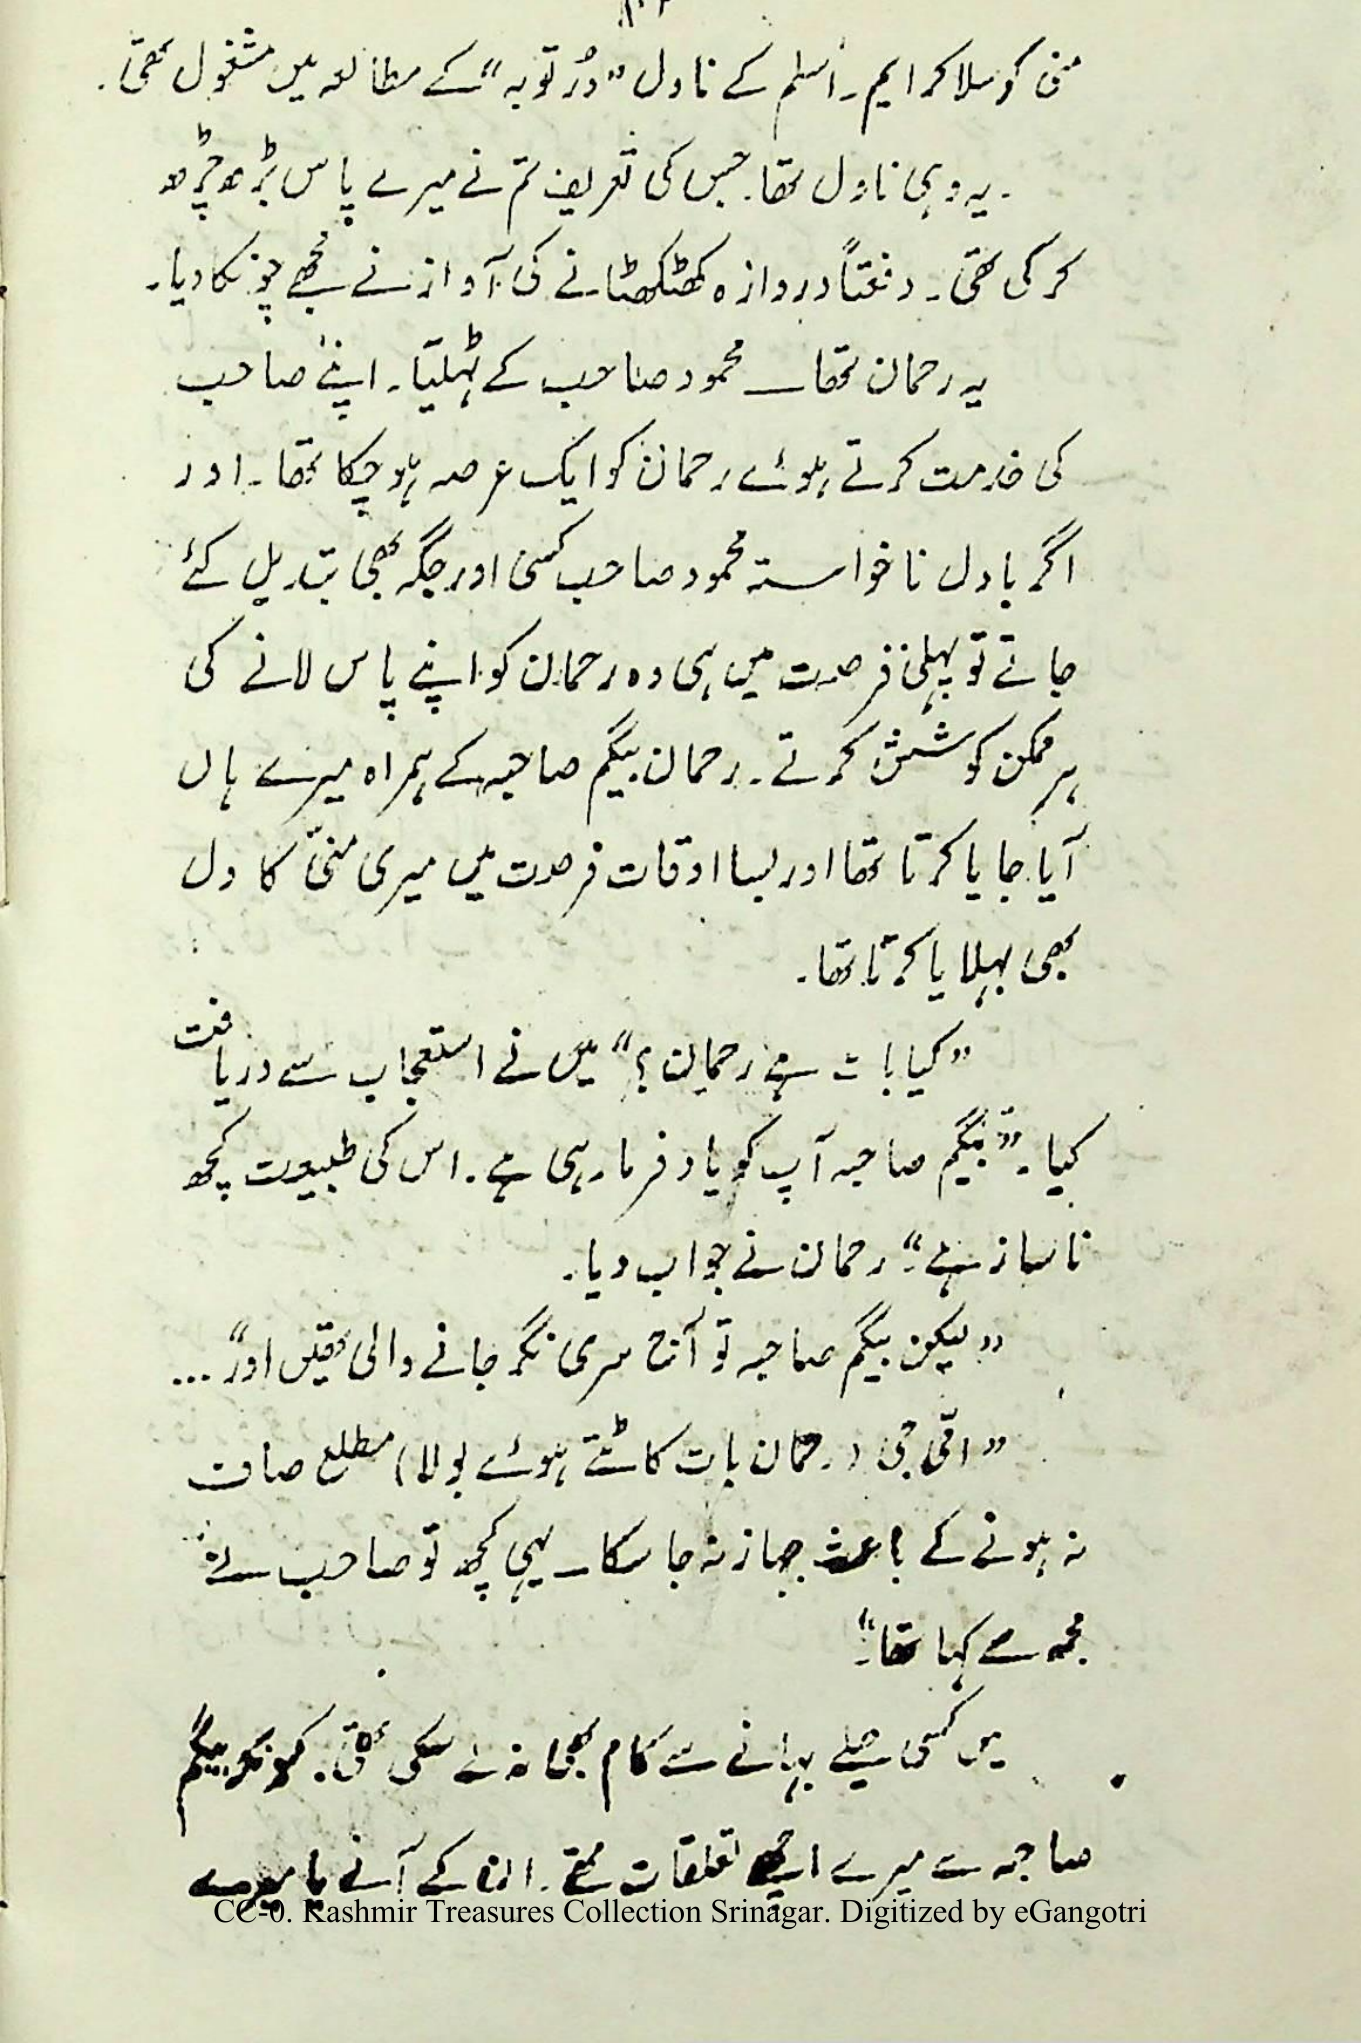 منی کو سلا کر ایم۔ اسلم کے ناول "درِ توبہ" کے مطالعہ میں مشغول تھی۔
۔یہ وہی ناول تھا۔ جس کی تعریف تم نے میرے پاس بڑھ چڑھ
کر کی تھی۔ دفعتاً دروازہ کھٹکھٹانے کی آواز نے مجھے چونکا دیا۔
یہ رحمان تھا۔ محمود صاحب کے ٹہلیا۔ اپنے صاحب
کی خدمت کرتے ہوئے رحمان کو ایک عرصہ ہو چکا تھا۔ اور
اگر بادل ناخواستہ محمود صاحب کسی اور جگہ بھی تبدیل کئے
جاتے تو پہلی فرصت میں ہی وہ رحمان کو اپنے پاس لانے کی
ہر ممکن کوشش کرتے۔ رحمان بیگم صاحبہ کے ہمراہ میرے ہاں
آیا جایا کرتا تھا اور بسا اوقات فرصت میں میری منیّ کا دل
بھی بہلایا کرتا تھا۔
"کیا بات ہے رحمان؟" میں نے استعجاب سے دریافت
کیا۔ "بیگم صاحبہ آپ کو یاد فرما رہی ہے۔ اس کی طبیعت کچھ
ناساز ہے"۔ رحمان نے جواب دیا۔
"لیکن بیگم صاحبہ تو آج سری نگر جانے والی تھیں اور"...
"امّی جی (رحمان بات کاٹتے ہوئے بولا) مطلع صاف
نہ ہونے کے باعث جہاز نہ جا سکا۔ یہی کچھ تو صاحب نے
مجھ سے کہا تھا"۔
میں کسی حیلے بہانے سے کام بھی نہ لے سکی تھی۔ کیونکہ بیگم
صاحبہ سے میرے اچھے تعلقات تھے۔ ان کے آنے یا میرے
CC-0. Kashmir Treasures Collection Srinagar. Digitized by eGangotri